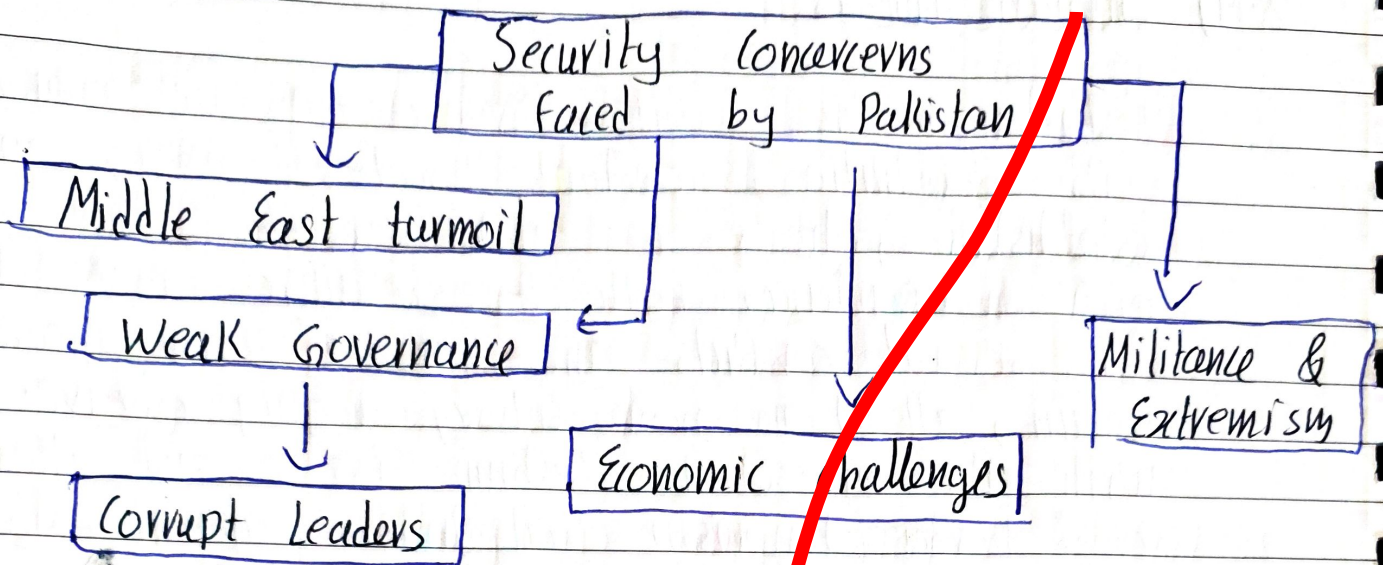 Security Concercerns
Faced by Pakistan
Middle East turmoil
Weak Governance
Corrupt Leaders
Economic hallenges
Militance &
Extremism